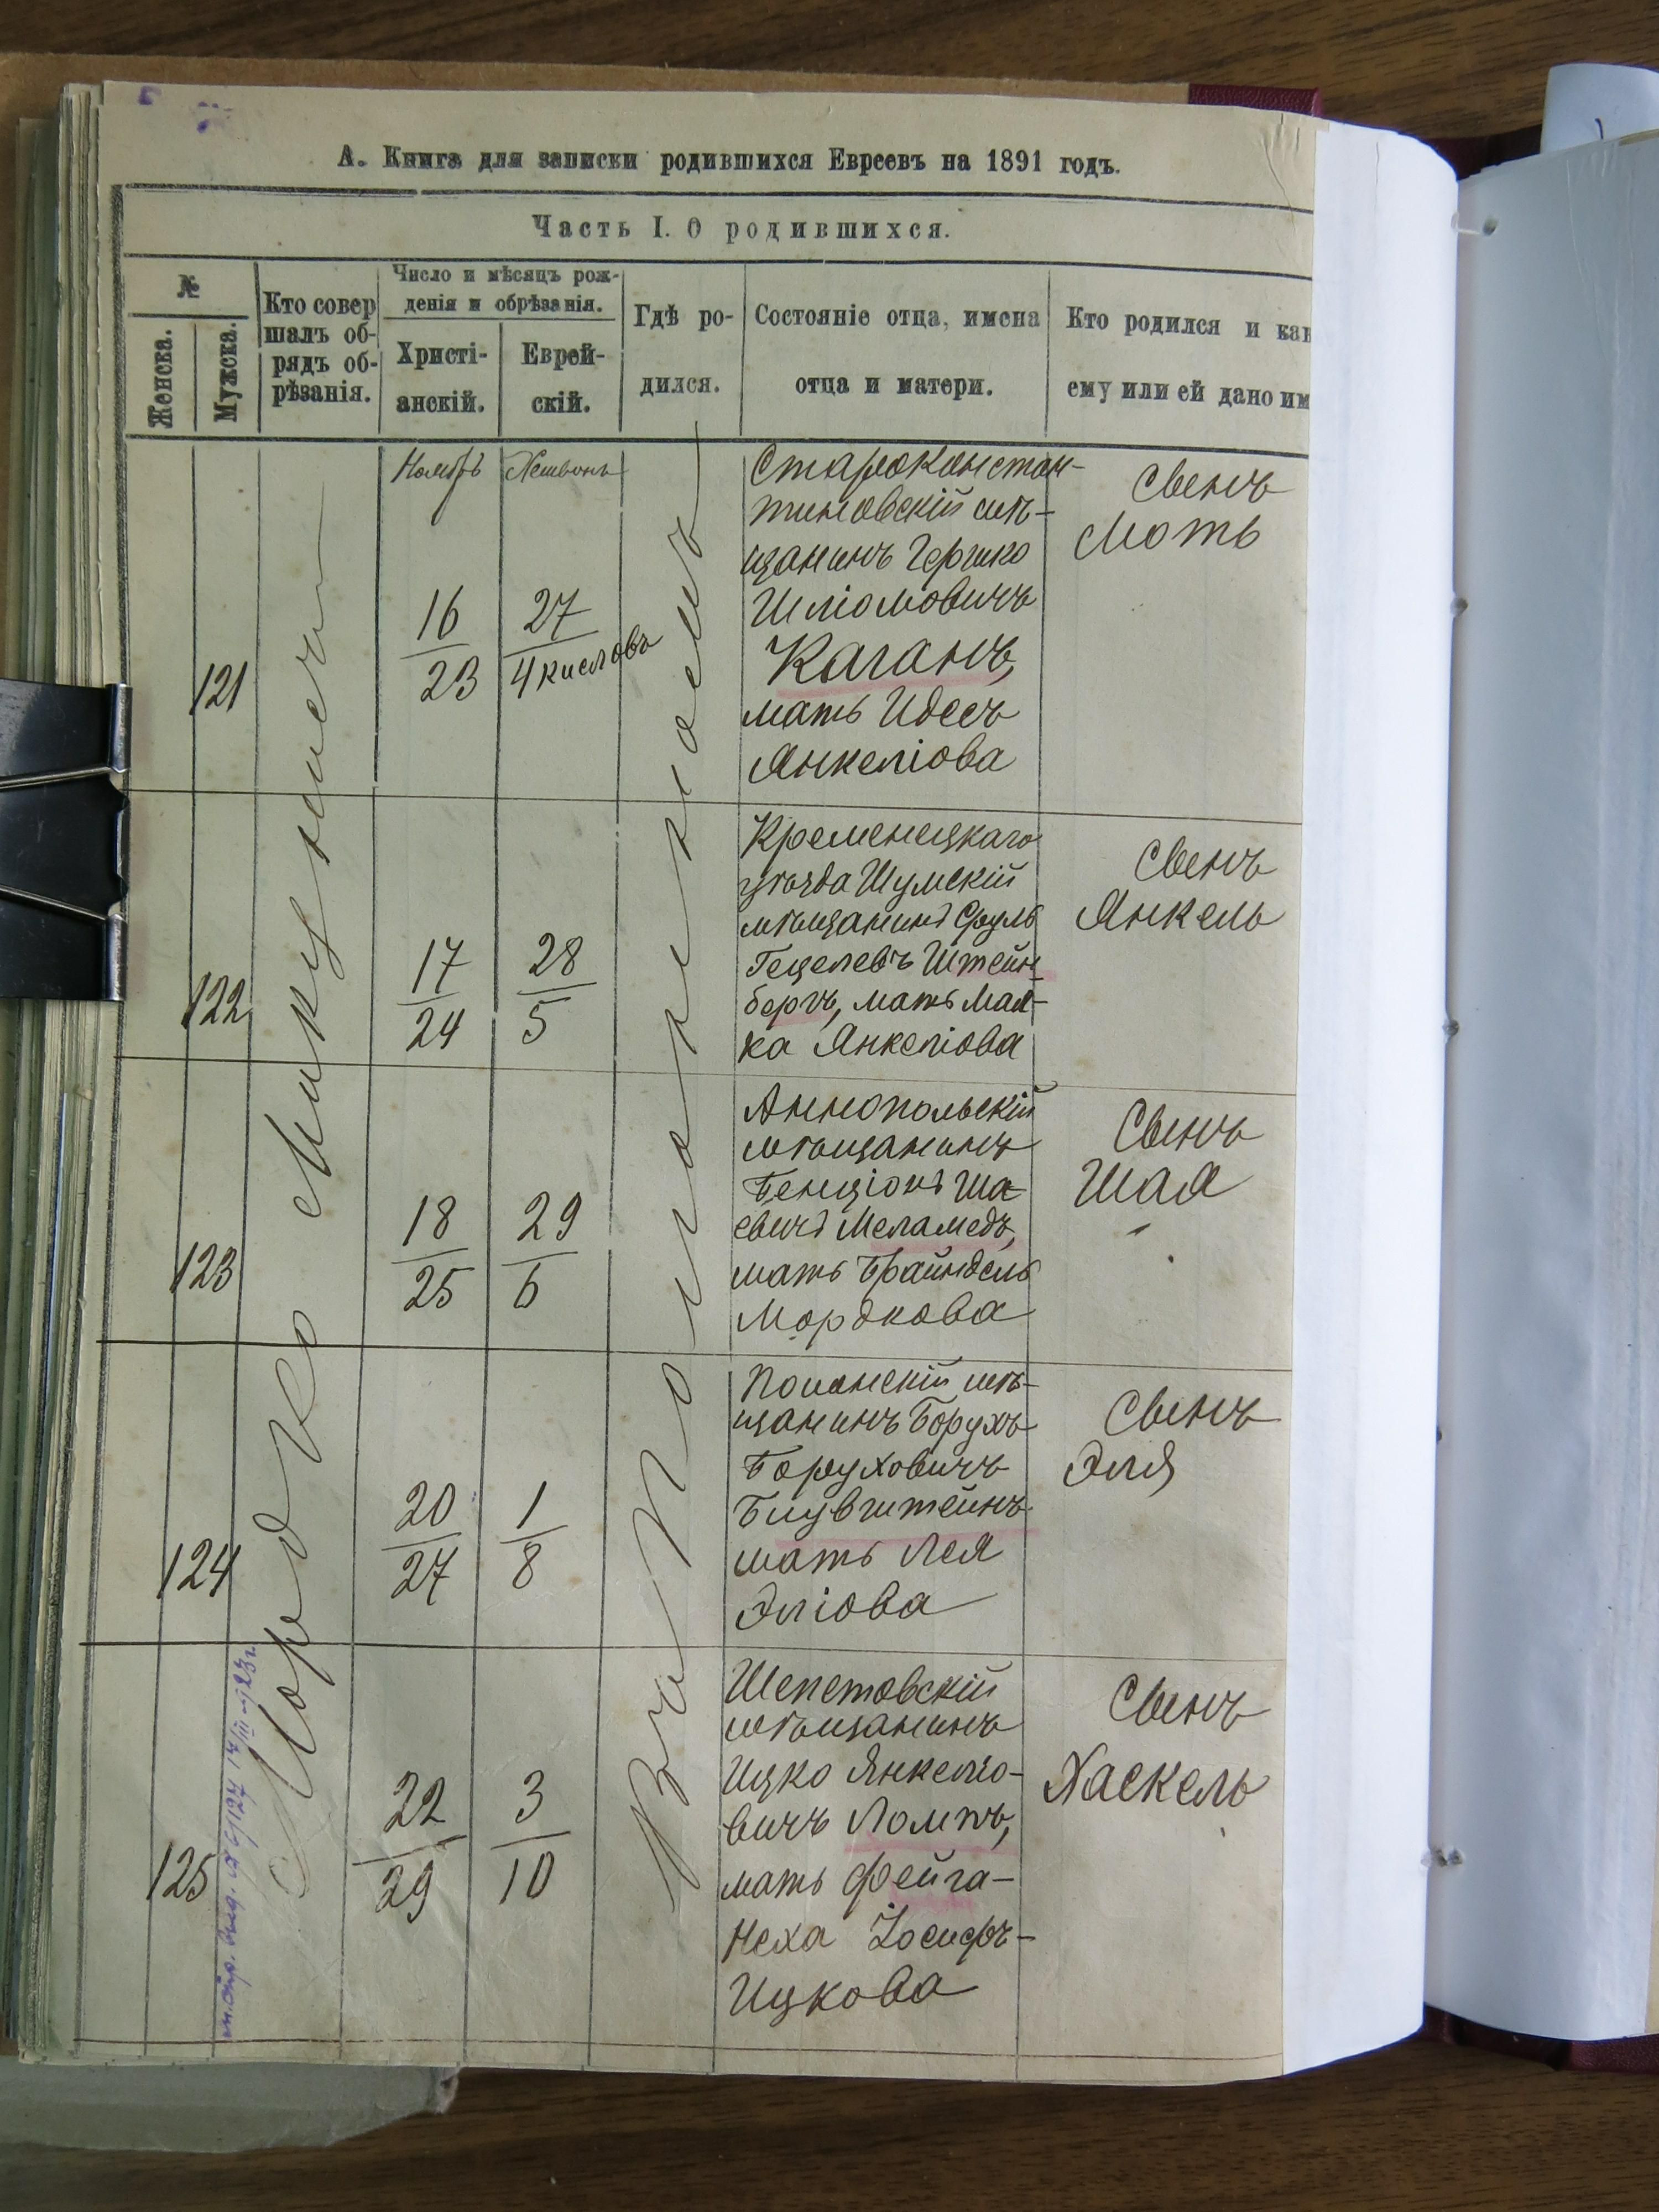 А. Книга для записки родившихся Евреевъ на 1891 годъ.
Часть I. О родившихся.
№
Женска.
Мужска.
Кто совер
шалъ об-
рядъ об-
рѣзанія.
Число и мѣсяцъ рож-
денія и обрѣзанія.
Христі-
анскій.
Еврей-
скій.
Гдѣ ро-
дился.
Состояніе отца, имена
отца и матери.
Кто родился и как
ему или ей дано им
Мордко
въ Полонномъ
Ноябрь
Хешвонъ
121
16
23
27
4 кислѳвъ
Староконстан-
тиновскій мѣ-
щанинъ Гершко
Шліомовичъ
Каганъ,
мать Идесъ
Янкеліова
Сынъ
Моть
122
17
24
28
5
Кременецкаго
уѣзда Шумскій
мѣщанинъ Сруль
Гецелевъ Штейн
бергъ, мать Мал-
ка Янкеліова
Сынъ
Янкель
123
18
25
29
6
Аннопольскій
мѣщанинъ
Бенціонъ Ша-
евичъ Меламедъ,
мать Брайндель
Мордкова
Сынъ
Шая
124
20
27
1
8
мѣ-
щанинъ Борухъ
Боруховичъ
мать Лея
Эліова
Сынъ
Эля
125
22
29
3
10
Шепетовскій
мѣщанинъ
Ицко Янкеліо-
вичъ
мать Фейга-
Неха Іосифъ-
Ицкова
Сынъ
Хаскель